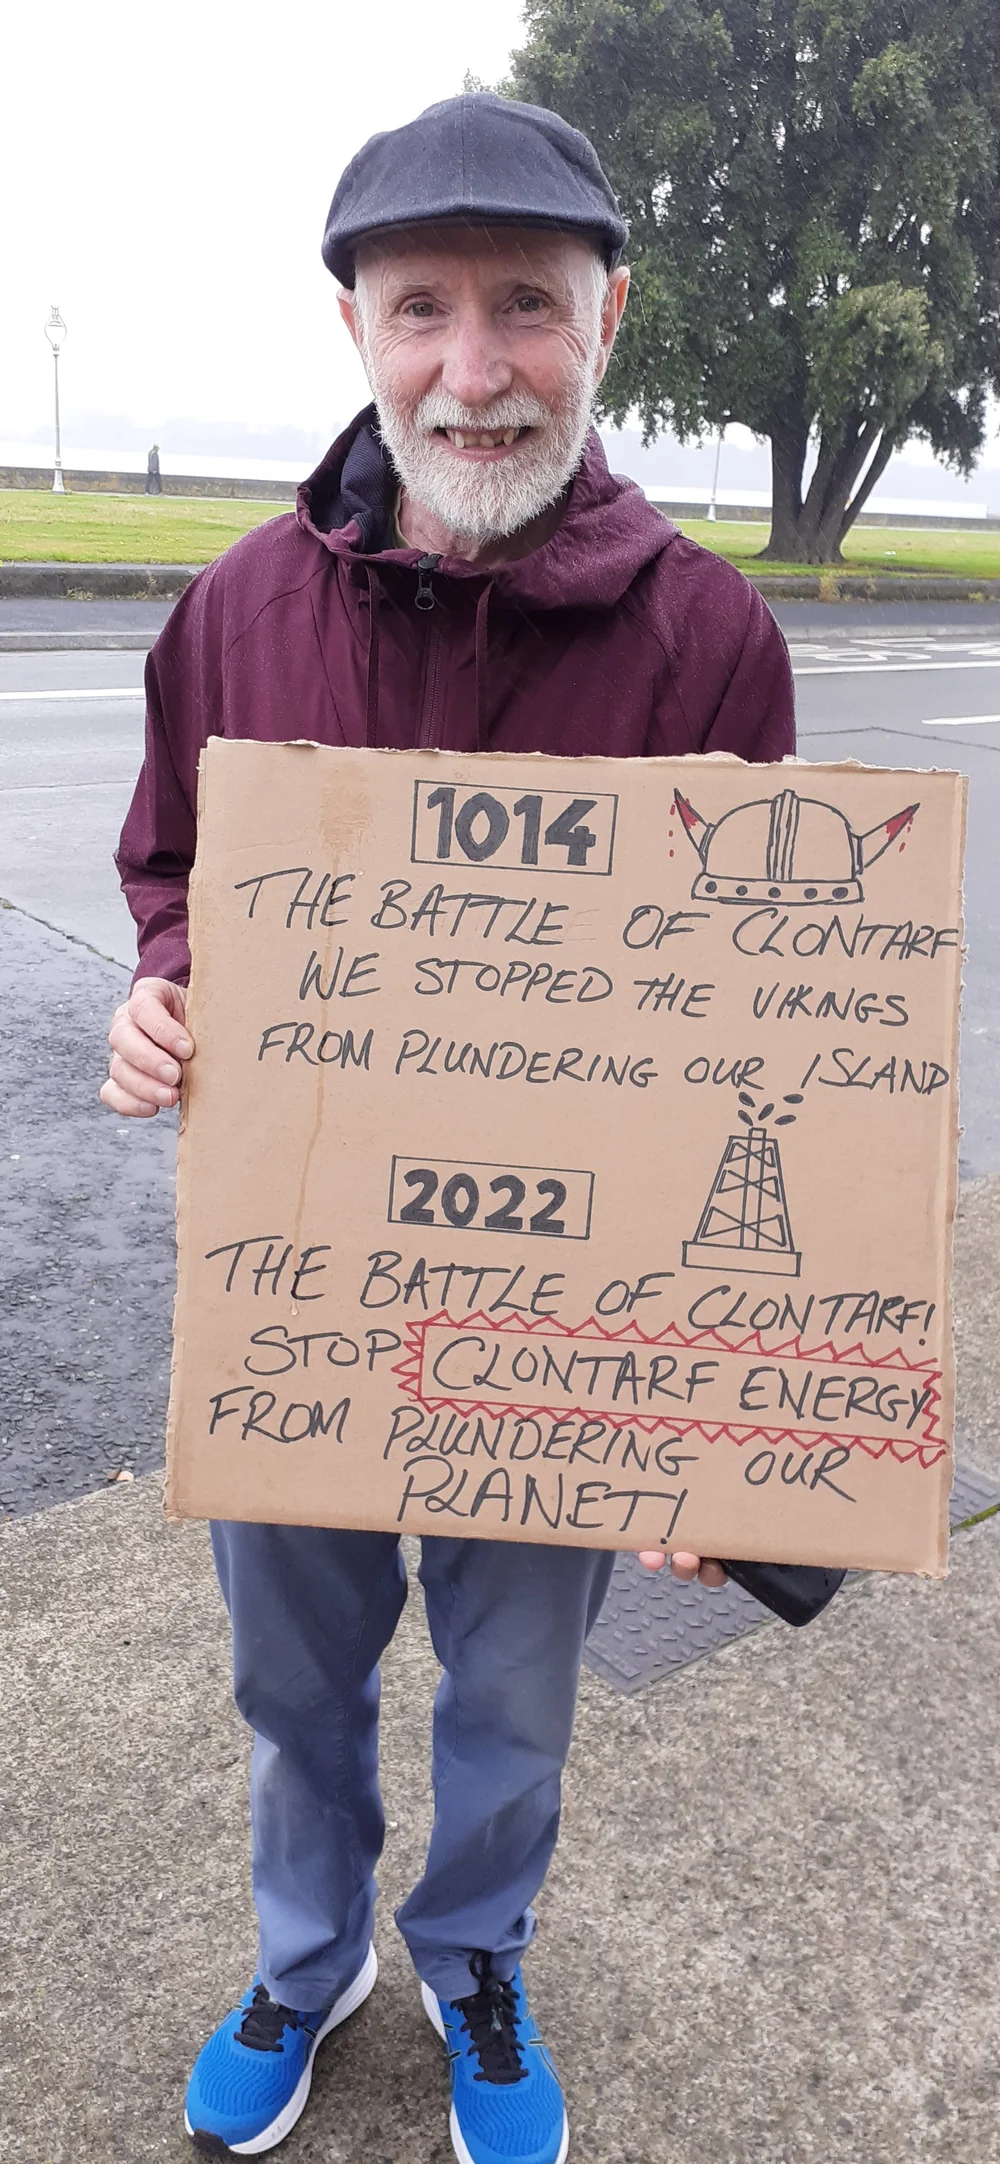 1014
THE BATTLE OF CLONTARF
WE STOPPED THE VIKINGS
FROM PLUNDERING OUR ISLAND
2022
THE BATTLE OF CLONTARF!
STOP CLONTARF ENERGY
FROM PLUNDERING OUR
PLANET!